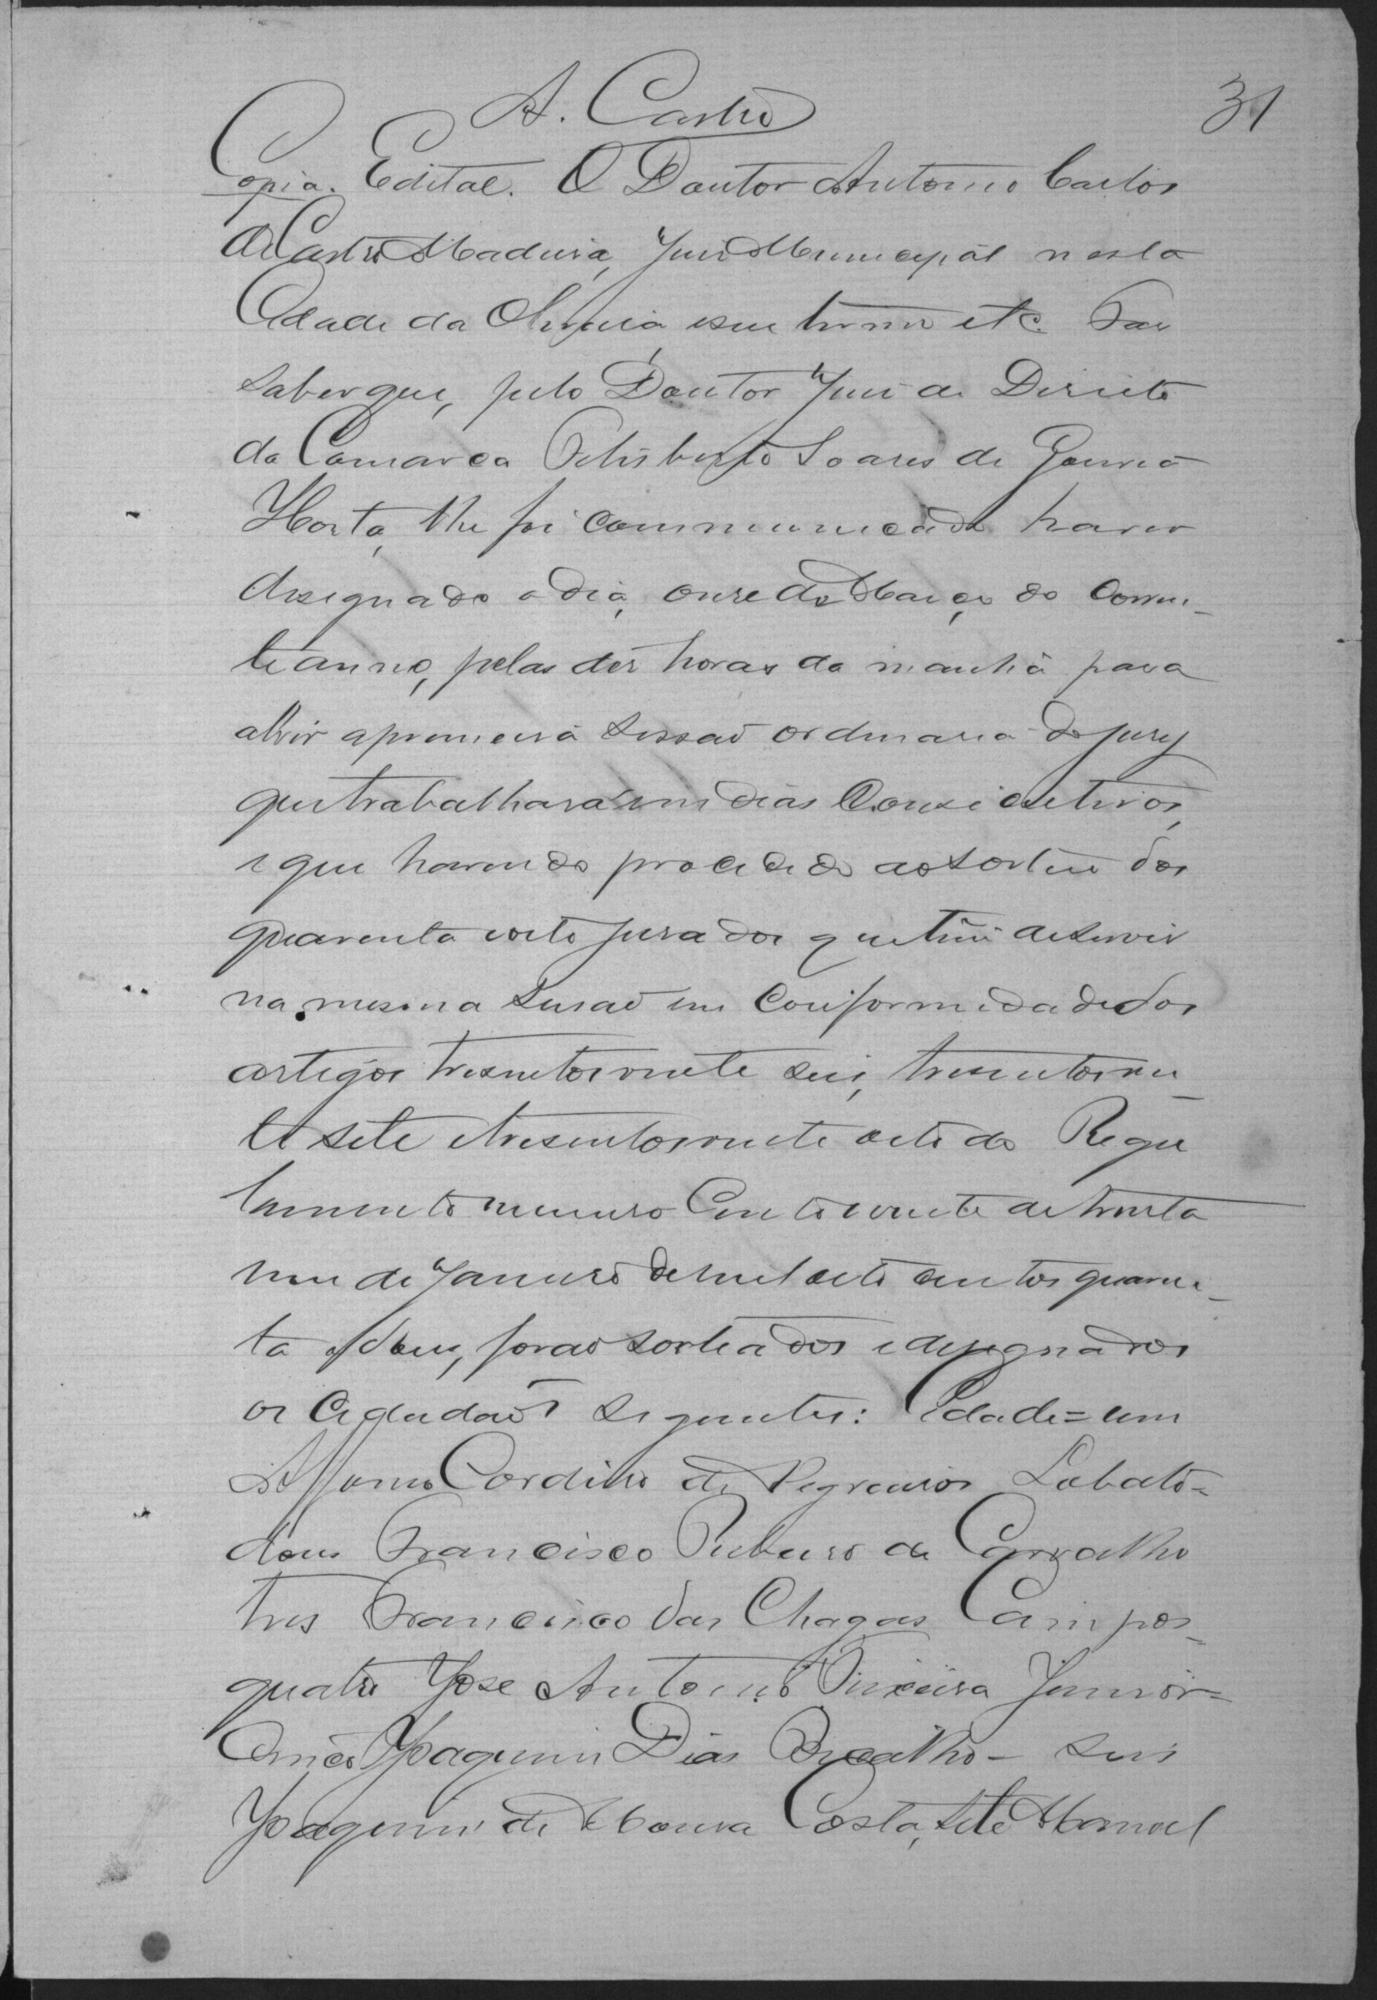 A. Castro
31
Copia. Edital. O Doutor Antonio Carlos
de Castro Madeira, Juis Municipal nesta
Cidade da Oliveira e seu termo etc. Faz
saber que, pelo Doutor Juis de Direito
da Comarca Felisberto Soares de Gouvea
Horta, lhe foi communicado haver
designado o dia, onze de Março do Corren-
te anno, pelas dez horas da manhã para
abrir a primeira sessão ordinaria do jury
que trabalhará em dias Consecutivos,
e que havendo procedido ao sorteio dos
quarenta e oito jurados que têm de servir
na mesma sessão em Conformidade dos
artigos tresentos e vinte seis, tresentos e vin-
te sete e tresentos e vinte oito do Regu
lamento numero Cento e vinte de trinta
e um de Janeiro de mil oito centos quaren-
ta e dous, forão sorteados e designados
os Cidadãos seguintes: Cidade = um
Affonso Cordeiro de Negreiros Lobato =
dous Francisco Ribeiro de Carvalho
tres Francisco das Chagas Campos =
quatro José Antonio Teixeira Junior =
Cinco Joaquim Dias Bicalho - seis
Joaquim de Moura Costa, sete Manoel